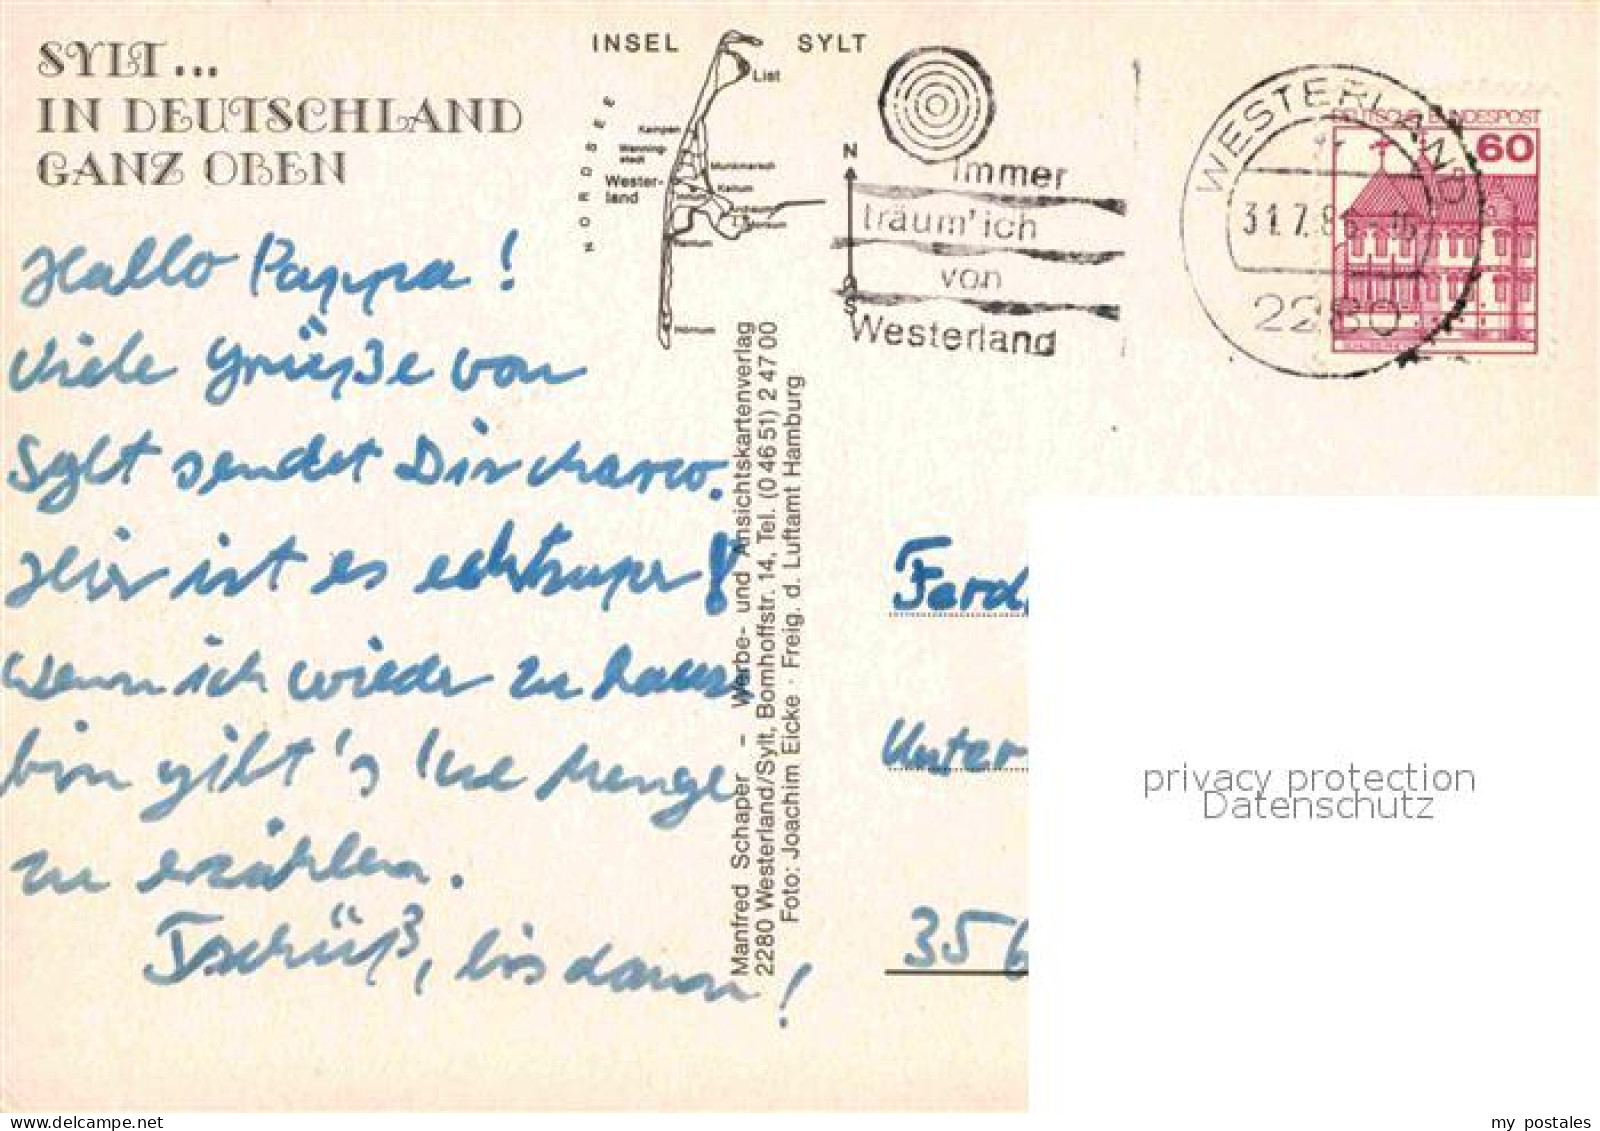 SYLT...
IN DEUTSCHLAND
GANZ OBEN
INSEL SYLT
NORDSEE
List
Kampen
Wenning-
stedt
Munkmarsch
Wester-
land
Keitum
Rantum
Hörnum
N
S
immer
träum' ich
von
Westerland
WESTERLAND
31.7.8
2280
DEUTSCHE BUNDESPOST
60
Hallo Pappa!
Viele Grüße von
Sylt sendet Dir Marco.
Hier ist es echt super!
Wenn ich wieder zu haus
bin gibt's 'ne Menge
zu erzählen.
Tschüß, bis dann!
Manfred Schaper – Werbe- und Ansichtskartenverlag
2280 Westerland/Sylt, Bomhoffstr. 14, Tel. (0 46 51) 2 47 00
Foto: Joachim Eicke · Freig. d. Luftamt Hamburg
Ferd
Unter
356
privacy protection
Datenschutz
www.delcampe.net
my_postales